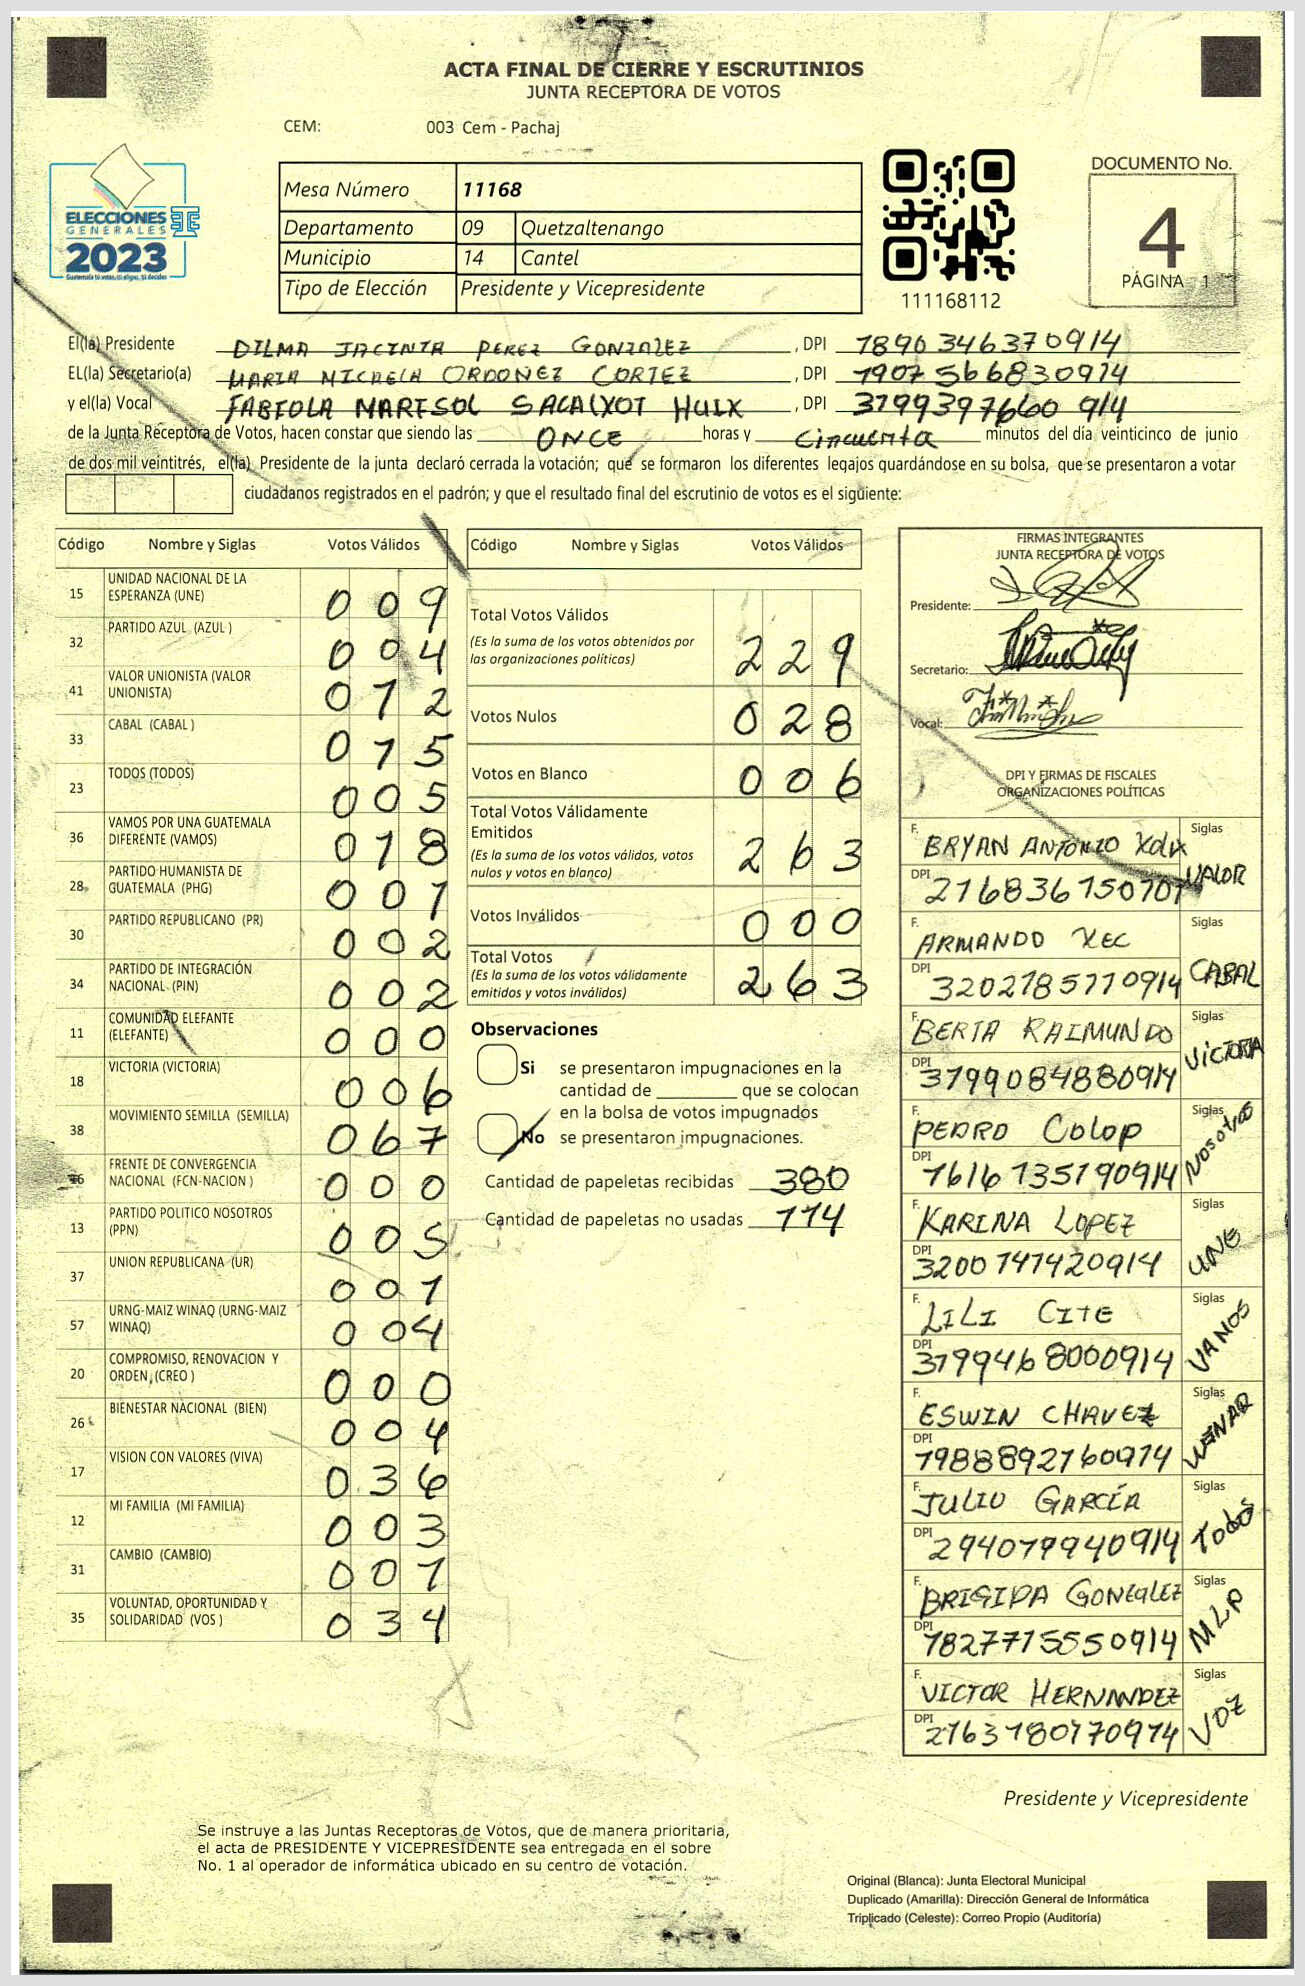 ACTA FINAL DE CIERRE Y ESCRUTINIOS
JUNTA RECEPTORA DE VOTOS
CEM: 003 Cem - Pachaj
ELECCIONES
GENERALES
2023
Mesa Número 11168
Departamento 09 Quetzaltenango
Municipio 14 Cantel
Tipo de Elección Presidente y Vicepresidente
111168112
DOCUMENTO No.
4
PÁGINA 1
El(la) Presidente DILMA JACINTA PEREZ GONZALEZ, DPI 1890346370914
EL(la) Secretario(a) MARIA MICAELA ORDOÑEZ CORTEZ, DPI 1907566830914
y el(la) Vocal FABIOLA MARISOL SACALXOT HUIX, DPI 3799397660914
de la Junta Receptora de Votos, hacen constar que siendo las ONCE horas y Cincuenta minutos del día veinticinco de junio
de dos mil veintitrés, el(la) Presidente de la junta declaró cerrada la votación; que se formaron los diferentes legajos quardándose en su bolsa, que se presentaron a votar
ciudadanos registrados en el padrón; y que el resultado final del escrutinio de votos es el siguiente:
Código Nombre y Siglas Votos Válidos
15 UNIDAD NACIONAL DE LA ESPERANZA (UNE) 009
32 PARTIDO AZUL (AZUL ) 004
41 VALOR UNIONISTA (VALOR UNIONISTA) 012
33 CABAL (CABAL ) 015
23 TODOS (TODOS) 005
36 VAMOS POR UNA GUATEMALA DIFERENTE (VAMOS) 018
28 PARTIDO HUMANISTA DE GUATEMALA (PHG) 001
30 PARTIDO REPUBLICANO (PR) 002
34 PARTIDO DE INTEGRACIÓN NACIONAL (PIN) 002
11 COMUNIDAD ELEFANTE (ELEFANTE) 000
18 VICTORIA (VICTORIA) 006
38 MOVIMIENTO SEMILLA (SEMILLA) 067
16 FRENTE DE CONVERGENCIA NACIONAL (FCN-NACION ) 000
13 PARTIDO POLITICO NOSOTROS (PPN) 005
37 UNION REPUBLICANA (UR) 001
57 URNG-MAIZ WINAQ (URNG-MAIZ WINAQ) 004
20 COMPROMISO, RENOVACION Y ORDEN (CREO ) 000
26 BIENESTAR NACIONAL (BIEN) 004
17 VISION CON VALORES (VIVA) 036
12 MI FAMILIA (MI FAMILIA) 003
31 CAMBIO (CAMBIO) 001
35 VOLUNTAD, OPORTUNIDAD Y SOLIDARIDAD (VOS ) 034
Código Nombre y Siglas Votos Válidos
Total Votos Válidos
(Es la suma de los votos obtenidos por
las organizaciones políticas) 229
Votos Nulos 028
Votos en Blanco 006
Total Votos Válidamente
Emitidos
(Es la suma de los votos válidos, votos
nulos y votos en blanco) 263
Votos Inválidos 000
Total Votos
(Es la suma de los votos válidamente
emitidos y votos inválidos) 263
Observaciones
Si se presentaron impugnaciones en la
cantidad de ________ que se colocan
en la bolsa de votos impugnados
No se presentaron impugnaciones.
Cantidad de papeletas recibidas 380
Cantidad de papeletas no usadas 114
FIRMAS INTEGRANTES
JUNTA RECEPTORA DE VOTOS
Presidente:
Secretario:
Vocal:
DPI Y FIRMAS DE FISCALES
ORGANIZACIONES POLÍTICAS
F. BRYAN ANTONIO Siglas VALOR
DPI 216836150701
F. ARMANDO XEC Siglas CABAL
DPI 3202785770914
F. BERTA RAIMUNDO Siglas VICTORIA
DPI 3799084880914
F. PEDRO COLOP Siglas NOSOTROS
DPI 1616135190914
F. KARINA LOPEZ Siglas UNE
DPI 3200747420914
F. LILI CITE Siglas VAMOS
DPI 3799468000914
F. ESWIN CHAVEZ Siglas
DPI 1988892160914
F. JULIO GARCÍA Siglas TODOS
DPI 2940799940914
F. BRIGIDA GONZALEZ Siglas MLP
DPI 1827715550914
F. VICTOR HERNANDEZ Siglas VOZ
DPI 2163180170914
Presidente y Vicepresidente
Se instruye a las Juntas Receptoras de Votos, que de manera prioritaria,
el acta de PRESIDENTE Y VICEPRESIDENTE sea entregada en el sobre
No. 1 al operador de informática ubicado en su centro de votación.
Original (Blanca): Junta Electoral Municipal
Duplicado (Amarilla): Dirección General de Informática
Triplicado (Celeste): Correo Propio (Auditoría)